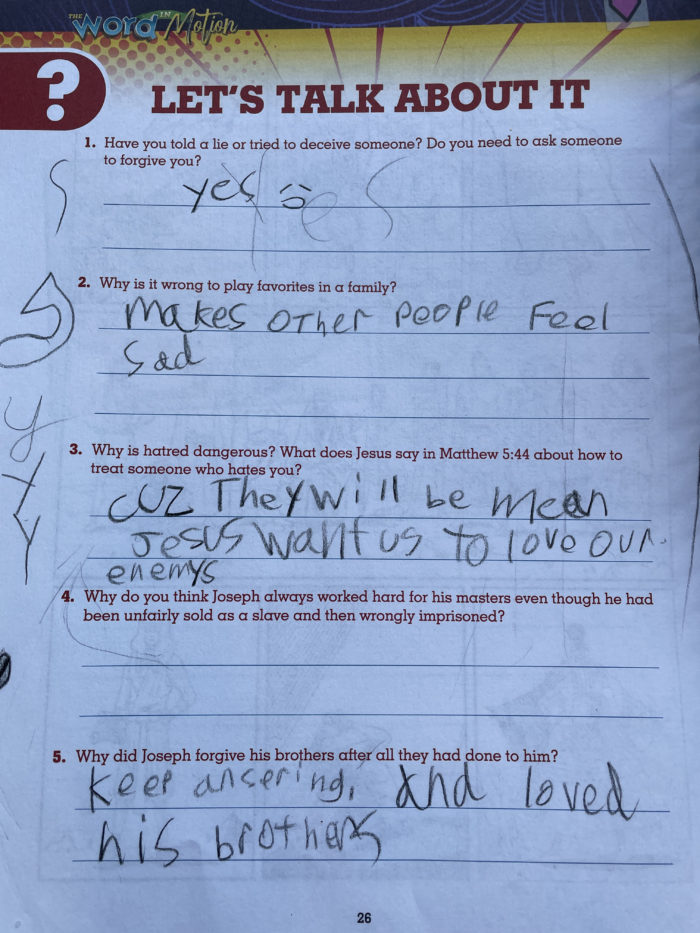 THE Word IN Motion
?
LET'S TALK ABOUT IT
1. Have you told a lie or tried to deceive someone? Do you need to ask someone
to forgive you?
yes
2. Why is it wrong to play favorites in a family?
makes other people Feel
sad
3. Why is hatred dangerous? What does Jesus say in Matthew 5:44 about how to
treat someone who hates you?
cuz They will be mean
Jesus want us to love our
enemys
4. Why do you think Joseph always worked hard for his masters even though he had
been unfairly sold as a slave and then wrongly imprisoned?
5. Why did Joseph forgive his brothers after all they had done to him?
Keep ansering, and loved
his brothers
26